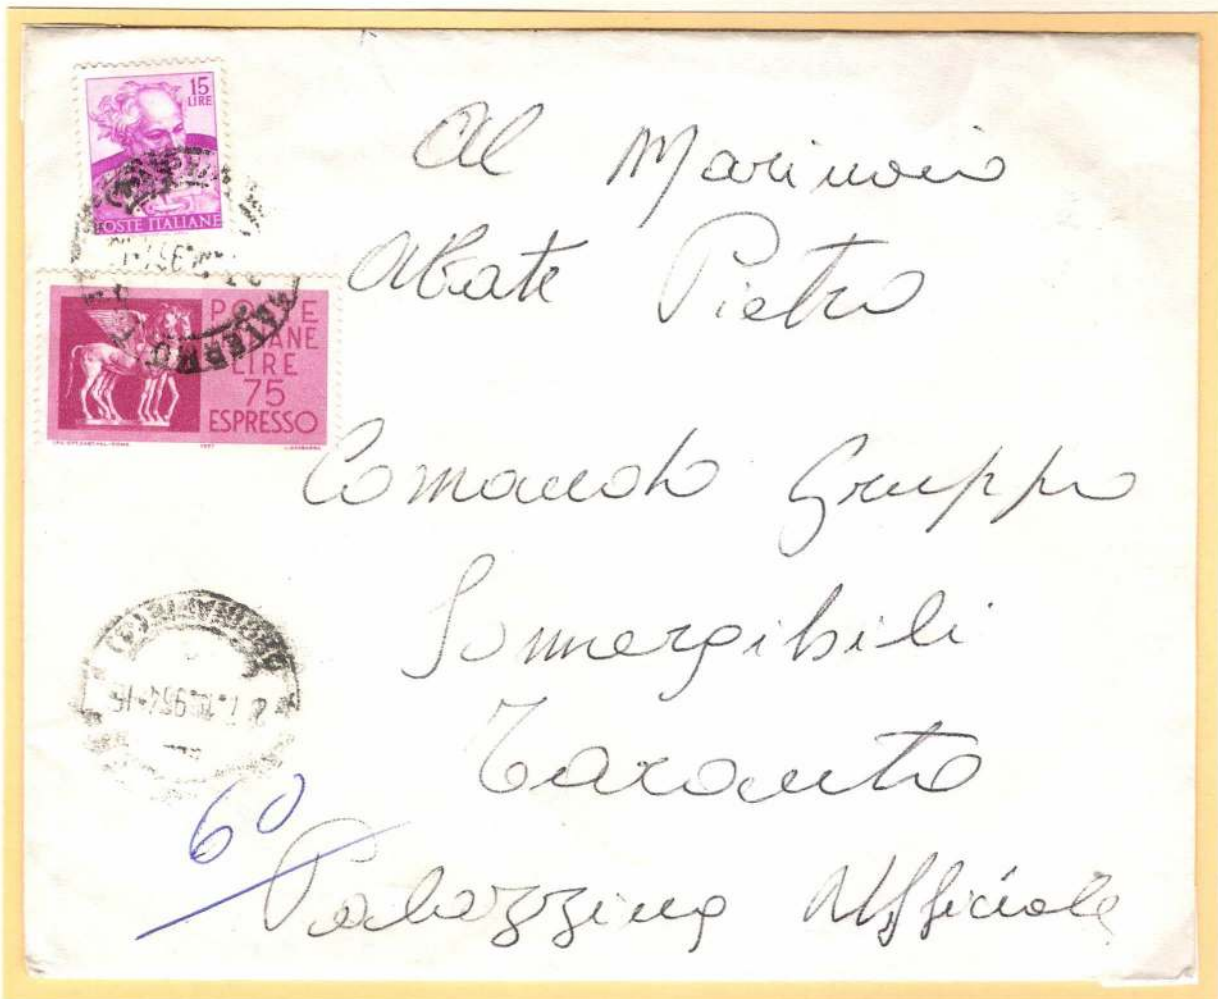 15
LIRE
POSTE ITALIANE
POSTE
ITALIANE
LIRE
75
ESPRESSO
Al Marinaio
Abate Pietro
Comando Gruppo
Sommergibili
Taranto
60
Palazzina Ufficiale